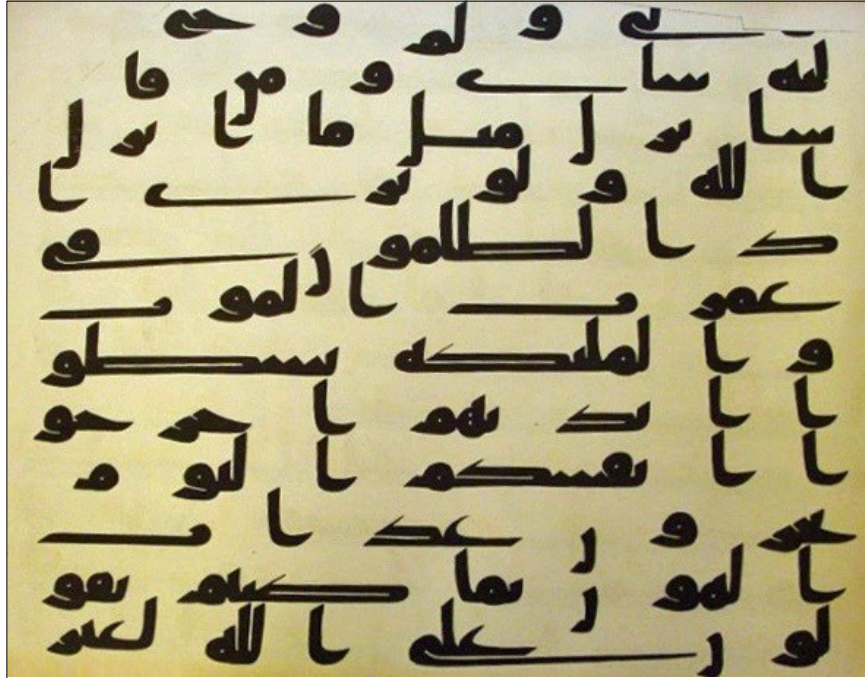 لى ولم يوح
ليه شاى ومن قا
سانزل مثل ما انزل
الله ولو ترى ا
ذ الظلمون فى
غمرت الموت
والملئكة بسطو
ا ايديهم اخرجو
ا انفسكم اليوم
تجزون عذاب
الهون بما كنتم تقو
لون على الله غير